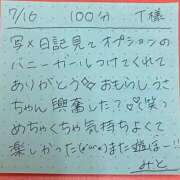 7/16 100分 T様
写メ日記見てオプションの
バニーガールつけてくれて
ありがとう◇ おもらしうさ
ちゃん興奮した??笑
めちゃくちゃ気持ちよくて
楽しかった(〃ω〃)また遊ぼー!!
みと